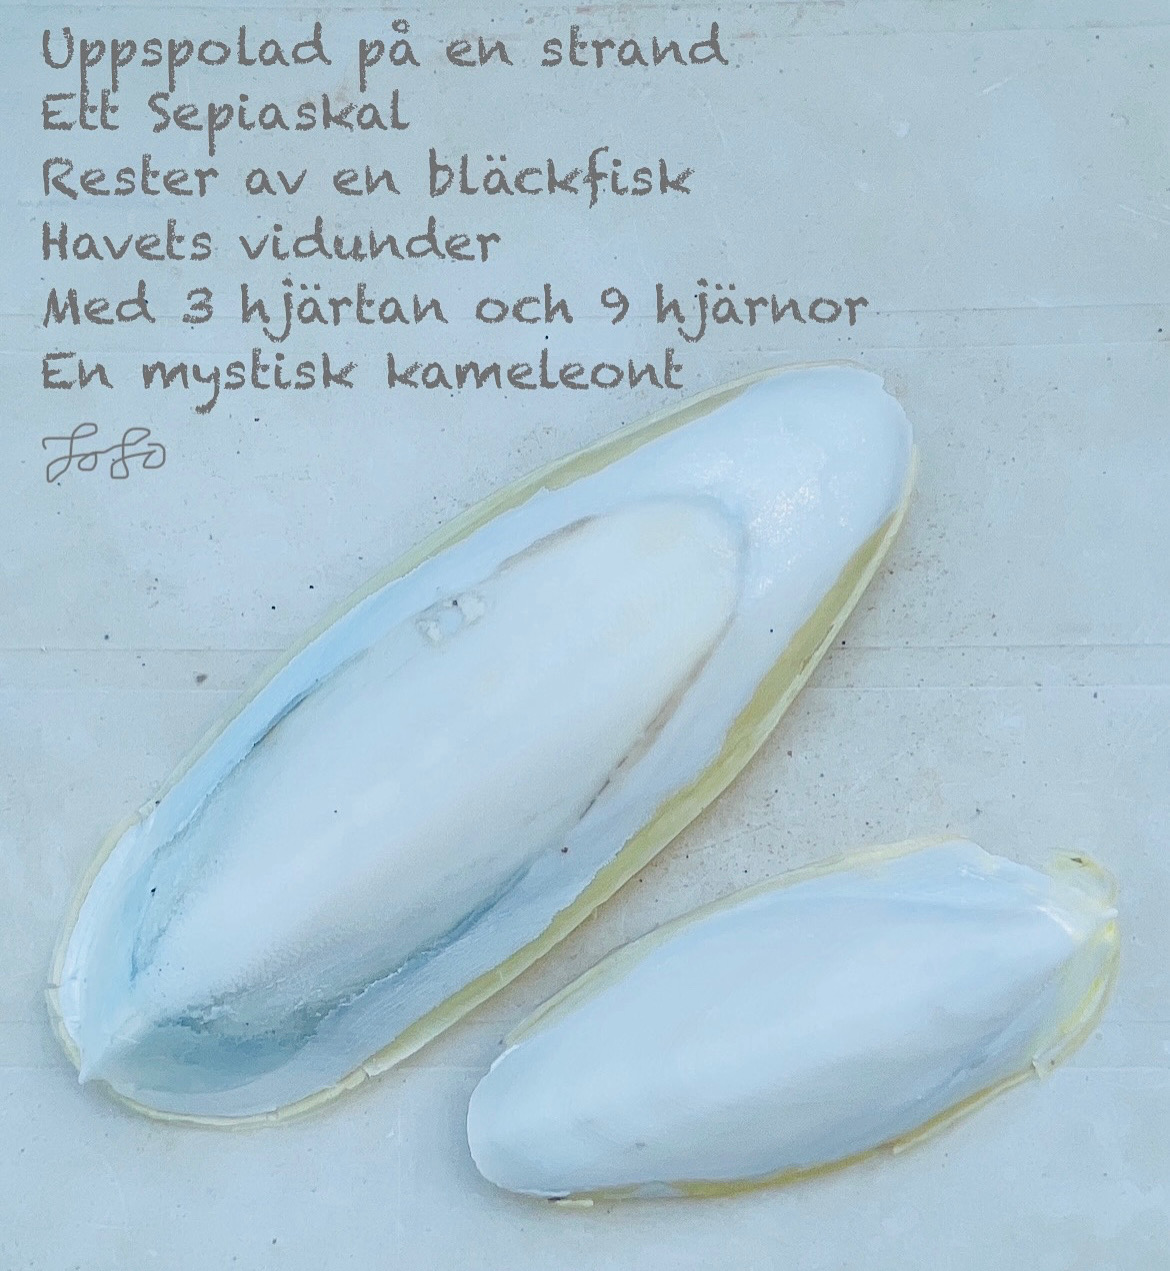 Uppspolad på en strand
Ett Sepiaskal
Rester av en bläckfisk
Havets vidunder
Med 3 hjärtan och 9 hjärnor
En mystisk kameleont
JoJo